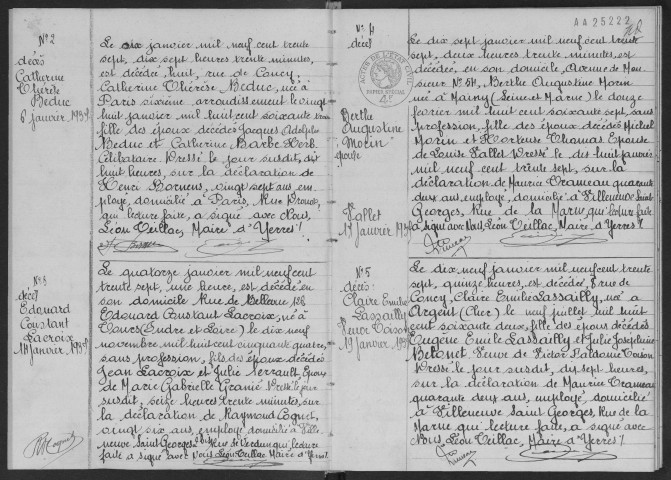 N° 2
décès
Catherine
Thérèse
Beduc
6 janvier 1937
Le six janvier mil neuf cent trente
sept, dix sept heures trente minutes,
est décédée, huit, rue de Concy,
Catherine Thérèse Beduc, née à
Paris sixième arrondissement le vingt
huit janvier mil huit cent soixante
fille des époux décédés Jacques Adolphe
Beduc et Catherine Barbe Herb
Célibataire Dressé le jour susdit, dix
huit heures, sur la déclaration de
Henri vingt sept ans em-
ployé, domicilié à Paris, Rue
qui lecture faite, a signé avec Nous,
Léon Veillac, Maire d'Yerres !
N° 3
décès
Edouard
Constant
Lacroix
14 janvier 1937
Le quatorze janvier mil neuf cent
trente sept, une heure, est décédé en
son domicile Rue de Bellevue 128
Edouard Constant Lacroix, né à
Tours (Indre et Loire) le dix neuf
novembre mil huit cent cinquante quatre,
sans profession, fils des époux décédés
Jean Lacroix et Julie Perrault, Epoux
de Marie Gabrielle Granié Dressé le jour
susdit, seize heures trente minutes, sur
la déclaration de Raymond Coquet,
vingt six ans, employé, domicilié à Ville
neuve Saint Georges 2 bis Rue de Verdun qui lecture
faite a signé avec Nous Léon Veillac, Maire d'Yerres !
AA25222
N° 4
décès
Berthe
Augustine
Morin
épouse
Vallet
17 janvier 1937
Le dix sept janvier mil neuf cent trente
sept, deux heures trente minutes, est
décédée, en son domicile, Avenue de Mon
sieur N° 54, Berthe Augustine Morin
née à Maincy (Seine et Marne) le douze
février mil huit cent soixante sept, sans
profession, fille des époux décédés Michel
Morin et Hortense Thomas Epouse
de Louis Vallet Dressé le dix huit janvier
mil neuf cent trente sept, sur la
déclaration de Maurice Trameau quarante
deux ans, employé, domicilié à Villeneuve Saint
Georges, Rue de la Marne, qui lecture faite
a signé avec Nous, Léon Veillac, Maire d'Yerres !
N° 5
décès
Claire Emilie
Lassailly
Veuve
19 janvier 1937
Le dix neuf janvier mil neuf cent trente
sept, quinze heures, est décédée, 8 rue de
Concy, Claire Emilie Lassailly, née à
Argent (Cher) le neuf juillet mil huit
cent soixante deux, fille des époux décédés
Eugène Emile Lassailly et Julie Joséphine
Veuve de Victor
Dressé le jour susdit, dix sept heures,
sur la déclaration de Maurice Trameau
quarante deux ans, employé, domicilié
à Villeneuve Saint Georges, Rue de la
Marne qui lecture faite, a signé avec
Nous, Léon Veillac, Maire d'Yerres !